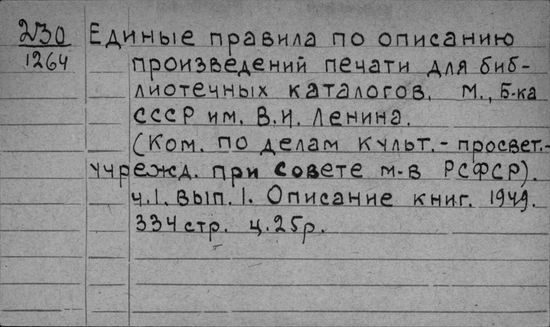 Д30 Единые правила по описанию
1264 произведений печати для биб-
лиотечных каталогов. М., Б-ка
СССР им. В.И. Ленина.
(Ком. по делам культ.-просвет.-
учрежд. при Совете м-в РСФСР).
ч.1. вып.1. Описание книг. 1949.
334 стр. ц.25р.